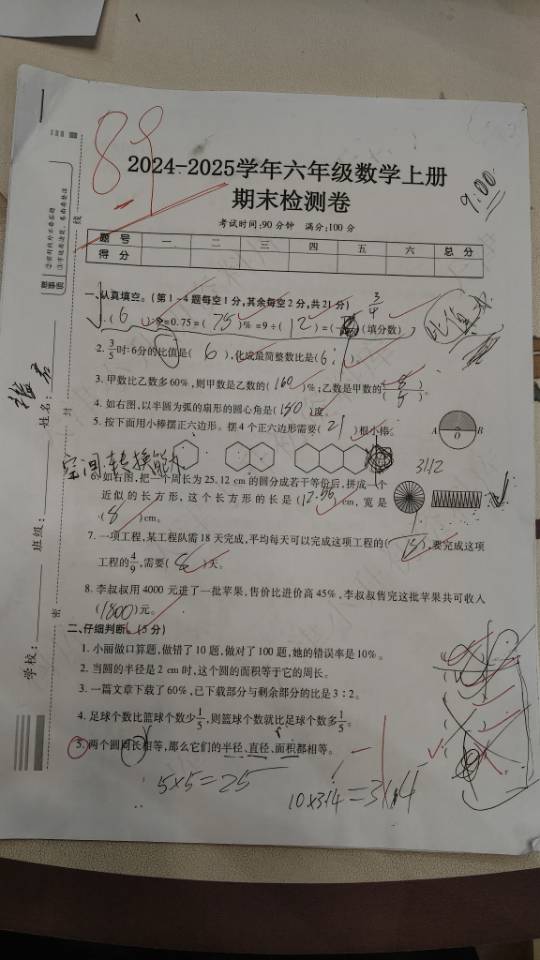 89
2024-2025学年六年级数学上册
期末检测卷
9:00
考试时间:90分钟 满分:100分
题号 一 二 三 四 五 六 总分
得分
一、认真填空。(第1~4题每空1分,其余每空2分,共21分)
3/4
=0.75=( 75 )%=9÷( 12 )=( )(填分数)
比值
2. 3/5时:6分的比值是( 6 ),化成最简整数比是(6:1)。
3. 甲数比乙数多60%,则甲数是乙数的( 160 )%;乙数是甲数的( )。
4. 如右图,以半圆为弧的扇形的圆心角是( 180 )度。
5. 按下面用小棒摆正六边形。摆4个正六边形需要( 21 )根小棒。
A O B
空间转换能力
6. 如右图,把一个周长为25.12 cm的圆分成若干等份后,拼成一个
近似的长方形,这个长方形的长是(12.56)cm,宽是
( 8 )cm。
7. 一项工程,某工程队需18天完成,平均每天可以完成这项工程的( 1/18 ),要完成这项
工程的4/9,需要( 8 )天。
8. 李叔叔用4000元进了一批苹果,售价比进价高45%,李叔叔售完这批苹果共可收入
(1800)元。
二、仔细判断。(5分)
1. 小丽做口算题,做错了10题,做对了100题,她的错误率是10%。
2. 当圆的半径是2 cm时,这个圆的面积等于它的周长。
3. 一篇文章下载了60%,已下载部分与剩余部分的比是3∶2。
4. 足球个数比篮球个数少1/5,则篮球个数就比足球个数多1/5。
5. 两个圆周长相等,那么它们的半径、直径、面积都相等。
5×5=25
-1
10×3.14=31.4
学校:
班级:
姓名:
密
封
线